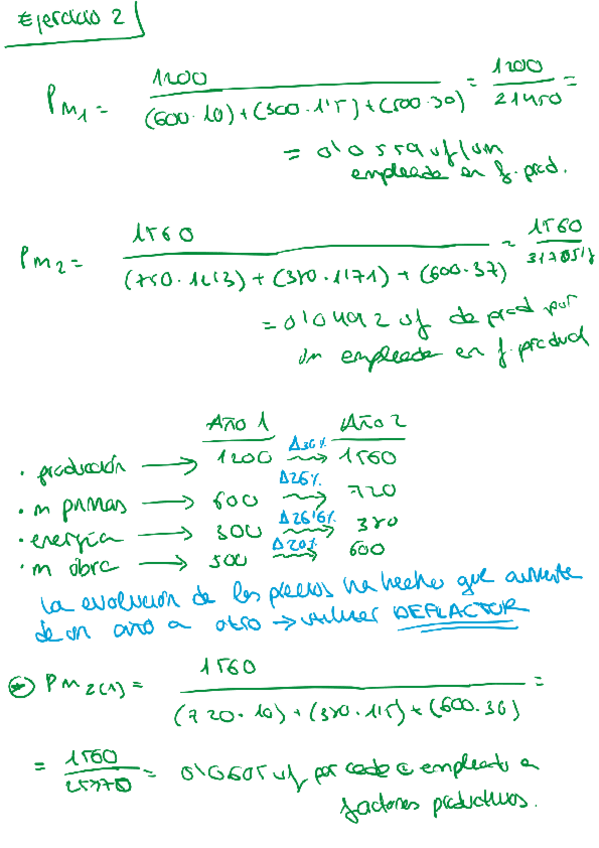 Ejercicio 2
PM1 = 1200 / (600·10)+(300·1'5)+(500·30) = 1200 / 21450 =
= 0'0559 uf/um
empleada en f. prod.
PM2 = 1560 / (750·12'3)+(380·1'71)+(600·37) = 1560
= 0'0492 uf de prod por
um empleada en f. product
Año 1 Año 2
· producción → 1200 Δ30% → 1560
· m primas → 600 Δ26% → 720
· energía → 300 Δ26'6% → 380
· m obra → 500 Δ20% → 600
la evolución de los precios ha hecho que aumente
de un año a otro → utilizar DEFLACTOR
PM2(1) = 1560 / (720·10)+(380·1'5)+(600·30) =
= 1560 / 25770 = 0'0605 uf por cada € empleado en
factores productivos.